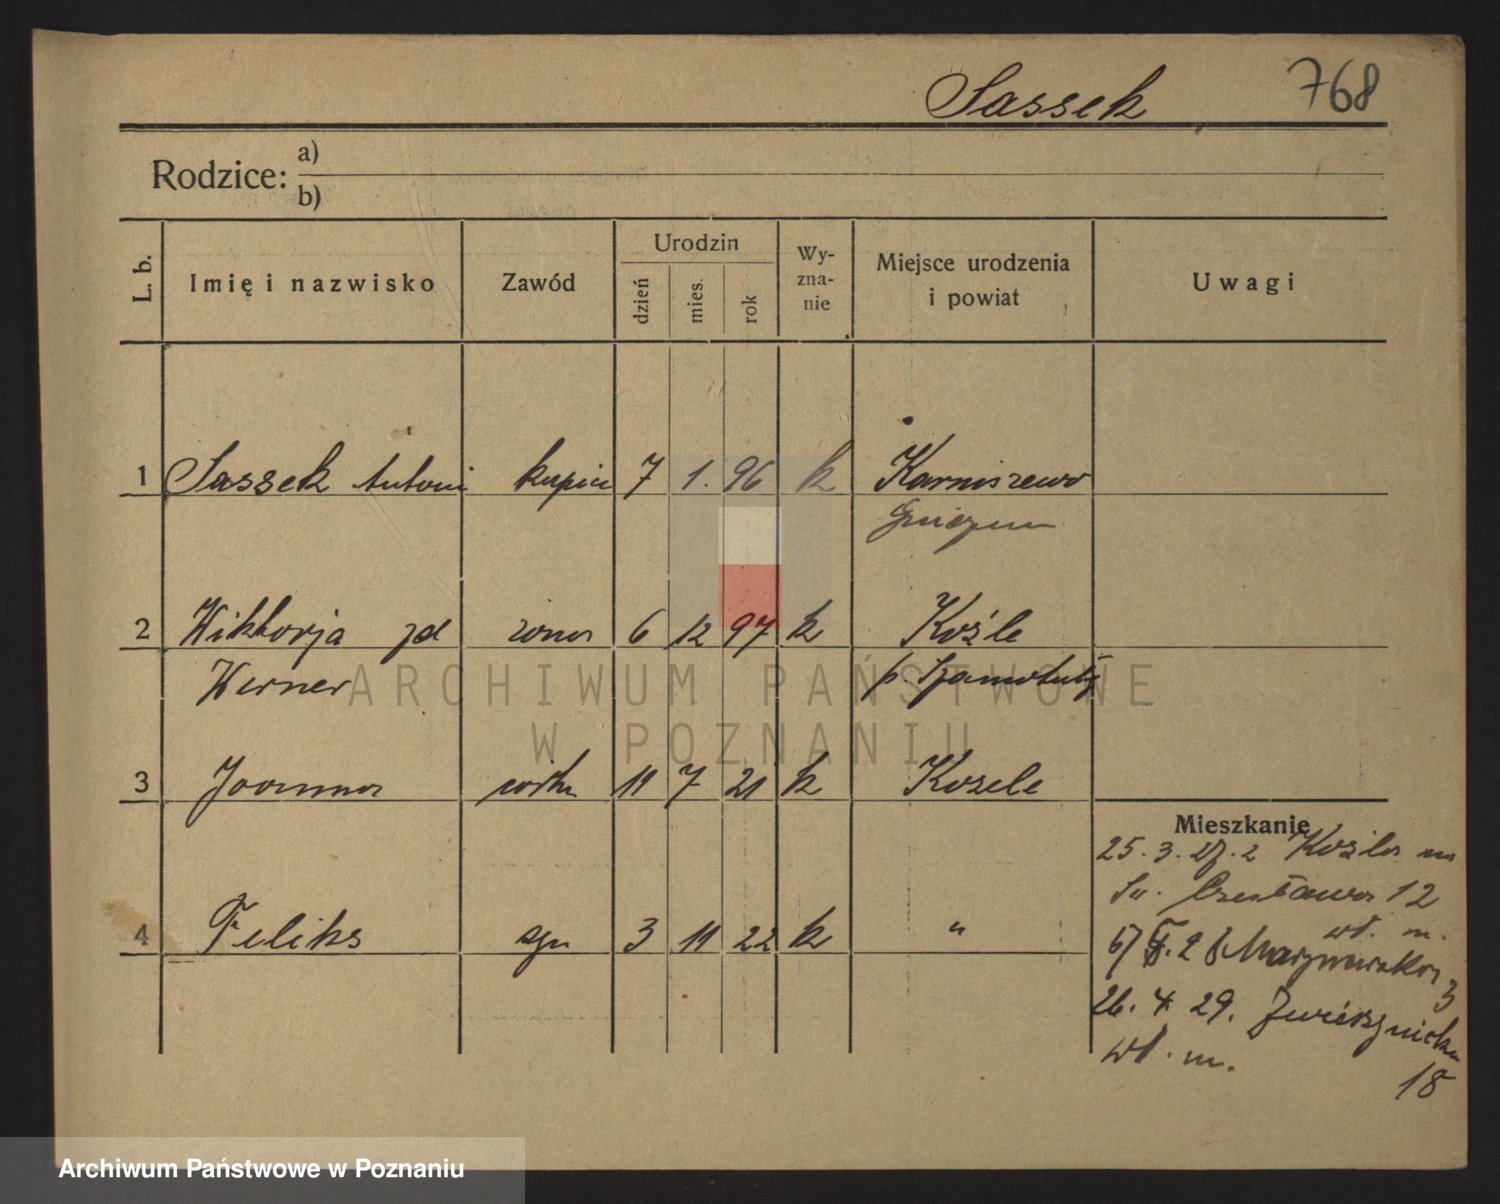 Sassek 768
Rodzice: a)
b)
L. b. Imię i nazwisko Zawód Urodzin dzień mies. rok Wy-zna-nie Miejsce urodzenia i powiat Uwagi
1 Sassek Antoni kupiec 7 1. 96 k Karniszewo
Gniezno
2 Wiktorja zd żona 6 12 97 k Koźle
Werner p Szamotuły
3 Joanna córka 11 7 21 k Kozele
Mieszkanie
25. 3. 27. z Koźla na
Św. Czesława 12
wł. m.
4 Feliks syn 3 11 22 k "
3
26. 4 29. Zwierzyniecka
wł. m. 18
ARCHIWUM PAŃSTWOWE
W POZNANIU
Archiwum Państwowe w Poznaniu